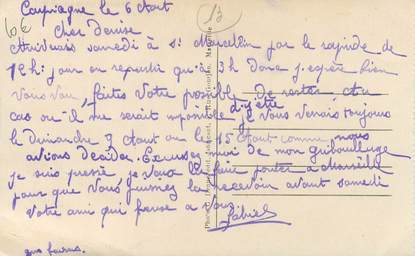 Carpiagne le 6 Aout
13
10€
Cher Denise
samedi à St Marcellin par le rapide de
12h: jour on repartir qu'à 3h Donc j'espère bien
vous voir, faites votre possible de rester au
cas ou il me serait impossible d'y être vous venais toujours
le dimanche 9 Aout ou le 15 Aout comme nous
avions décider. Excusez moi de mon gribouillage
je suis pressé, je vous la faire porter à Marseille
pour que vous puissiez la recevoir avant samedi
Votre ami qui pense a vous
gros baisers.